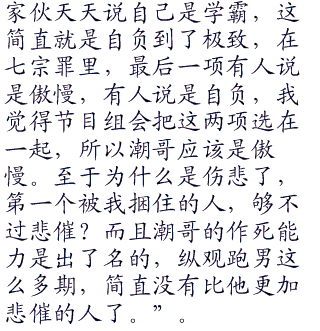 家伙天天说自己是学霸，这
简直就是自负到了极致，在
七宗罪里，最后一项有人说
是傲慢，有人说是自负，我
觉得节目组会把这两项选在
一起，所以潮哥应该是傲
慢。至于为什么是伤悲了，
第一个被我捆住的人，够不
过悲催？而且潮哥的作死能
力是出了名的，纵观跑男这
么多期，简直没有比他更加
悲催的人了。”。